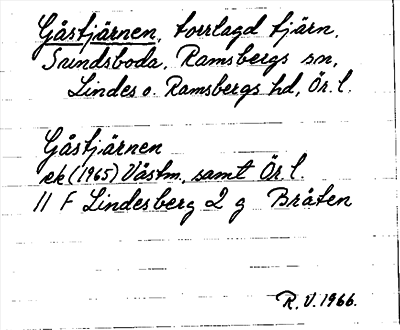 Gåstjärnen, torrlagd tjärn,
Sundsboda, Ramsbergs sn,
Lindes o. Ramsbergs hd, Ör. l.
Gåstjärnen
ek (1965) Västm. samt Ör. l.
11 F Lindesberg 2 g Bråten
R. V. 1966.